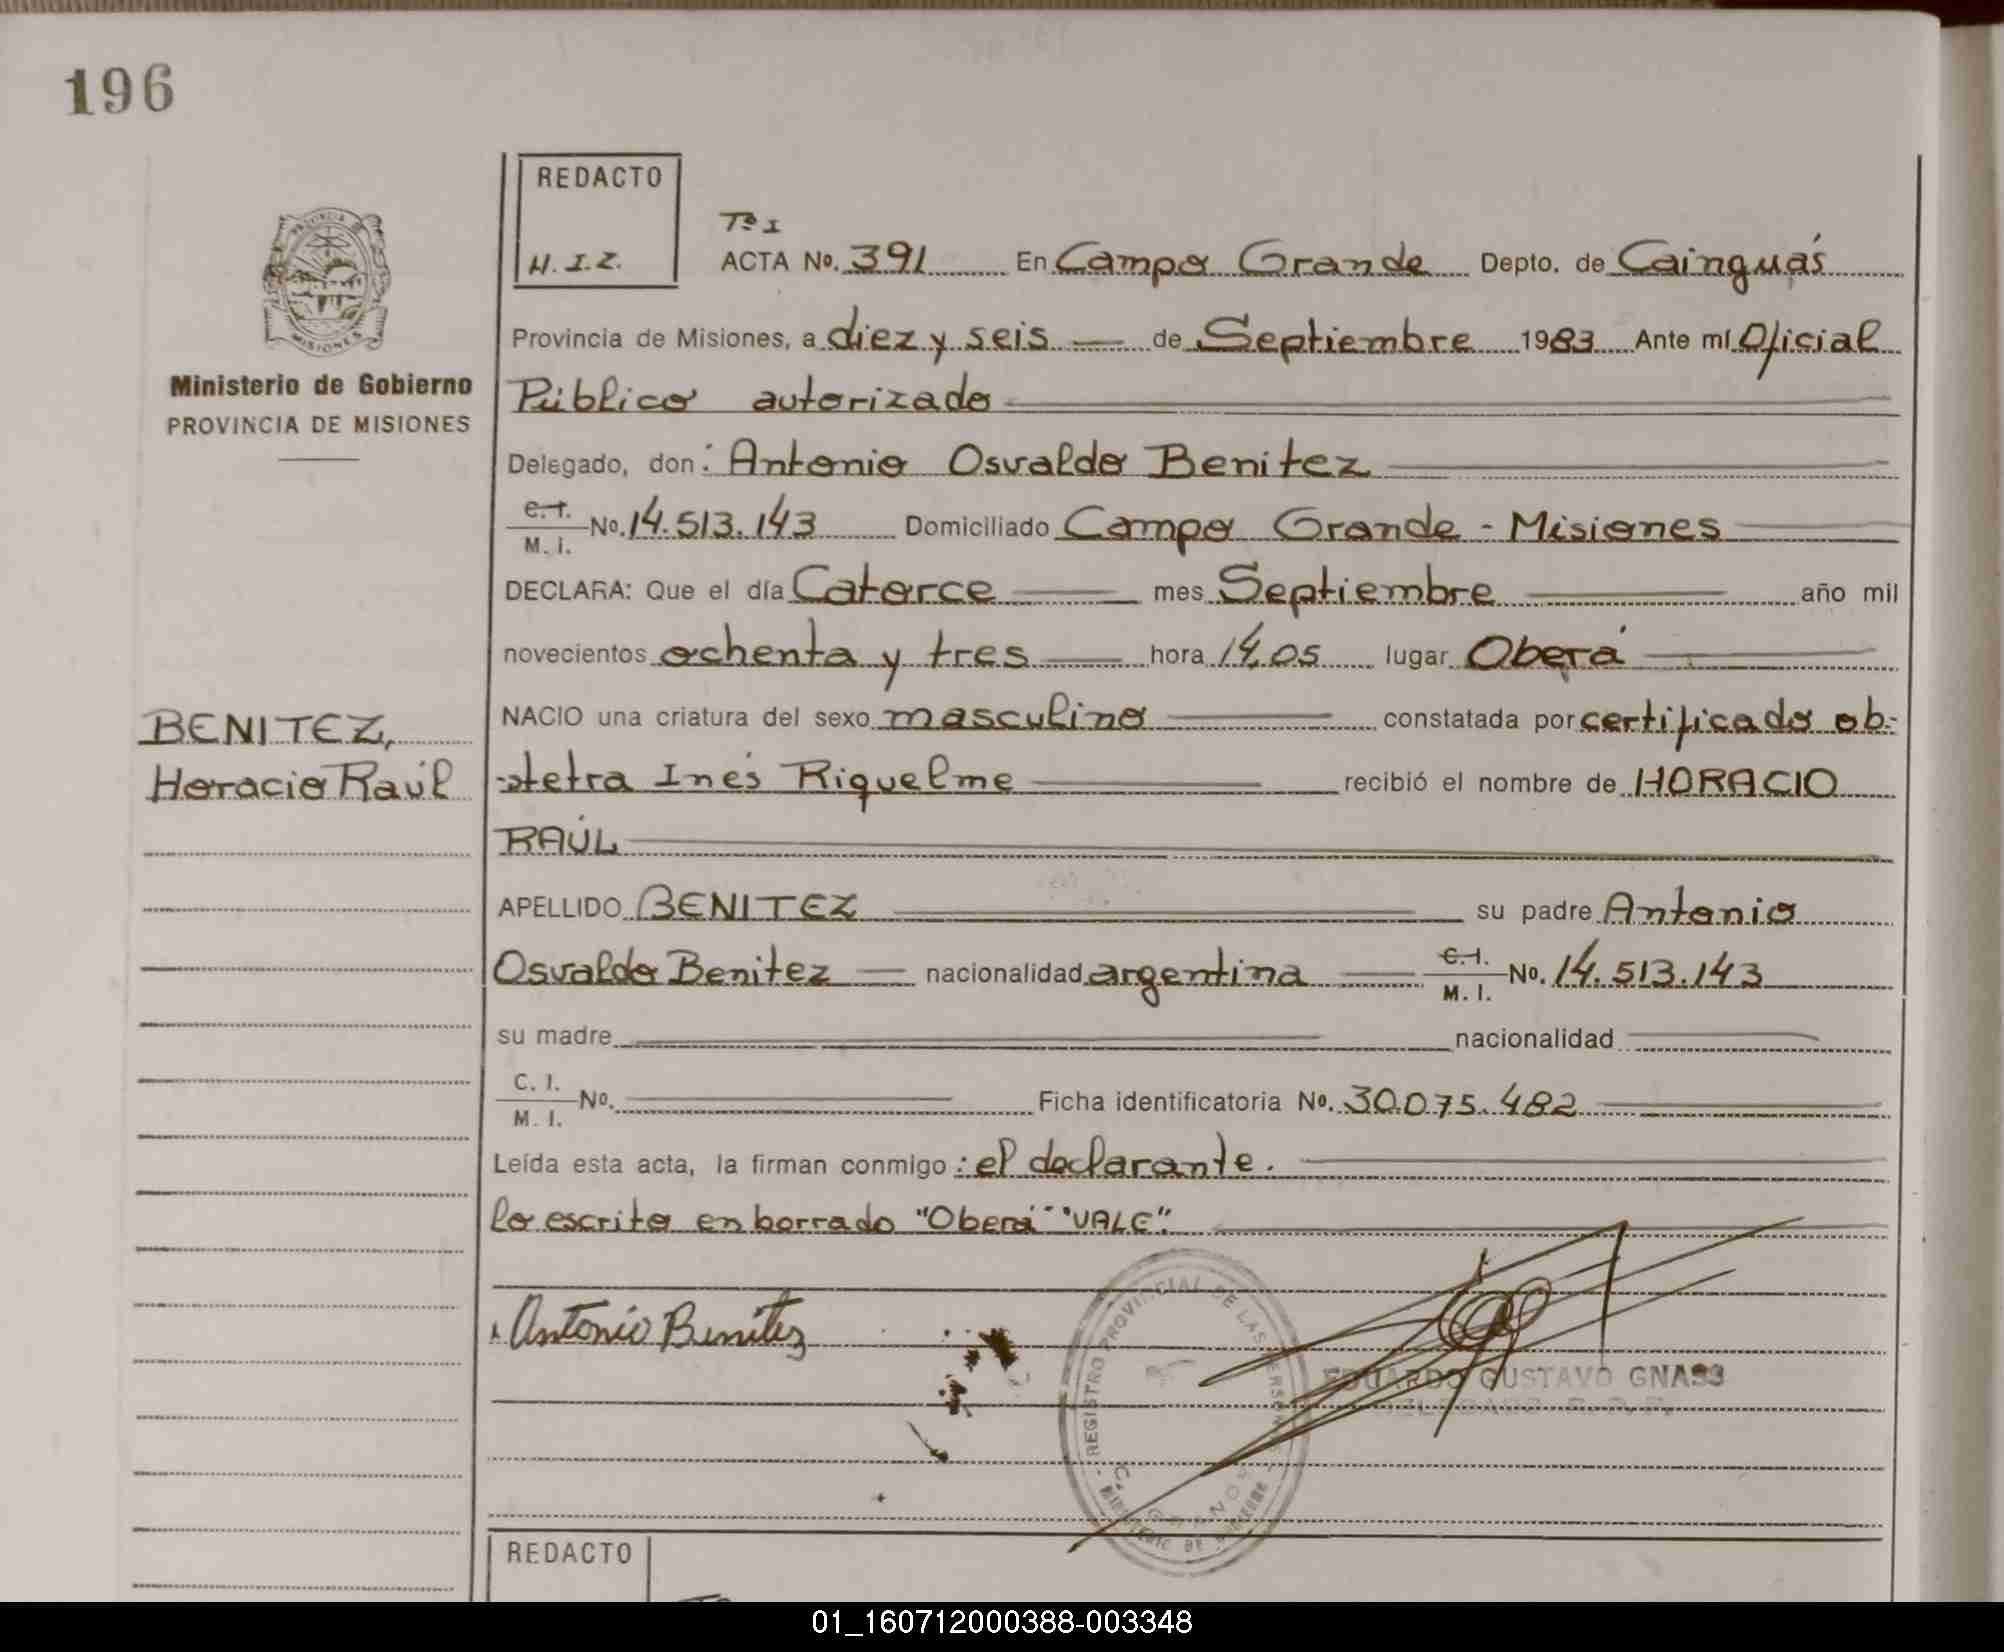 196
REDACTO
H.I.Z.
Tº I
ACTA Nº. 391 En Campo Grande Depto. de Cainguás
Provincia de Misiones, a diez y seis — de Septiembre 1983 Ante mí Oficial
Público autorizado
Delegado, don: Antonio Osvaldo Benitez
C.I. M.I. No. 14.513.143 Domiciliado Campo Grande - Misiones
DECLARA: Que el día Catorce mes Septiembre año mil
novecientos ochenta y tres hora 14,05 lugar Oberá
NACIO una criatura del sexo masculino constatada por certificado ob-
-stetra Inés Riquelme recibió el nombre de HORACIO
RAÚL
APELLIDO BENITEZ su padre Antonio
Osvaldo Benitez — nacionalidad argentina — C.I. M.I. No. 14.513.143
su madre nacionalidad
C.I. M.I. No. Ficha identificatoria Nº. 30.075.482
Leída esta acta, la firman conmigo: el declarante.
lo escrito en borrado "Oberá" "VALE".
Antonio Benitez
PROVINCIA DE
MISIONES
Ministerio de Gobierno
PROVINCIA DE MISIONES
BENITEZ,
Horacio Raúl
REGISTRO PROVINCIAL DE LAS PERSONAS
MINISTERIO DE GOBIERNO
EDUARDO GUSTAVO GNASS
REDACTO
01_160712000388-003348